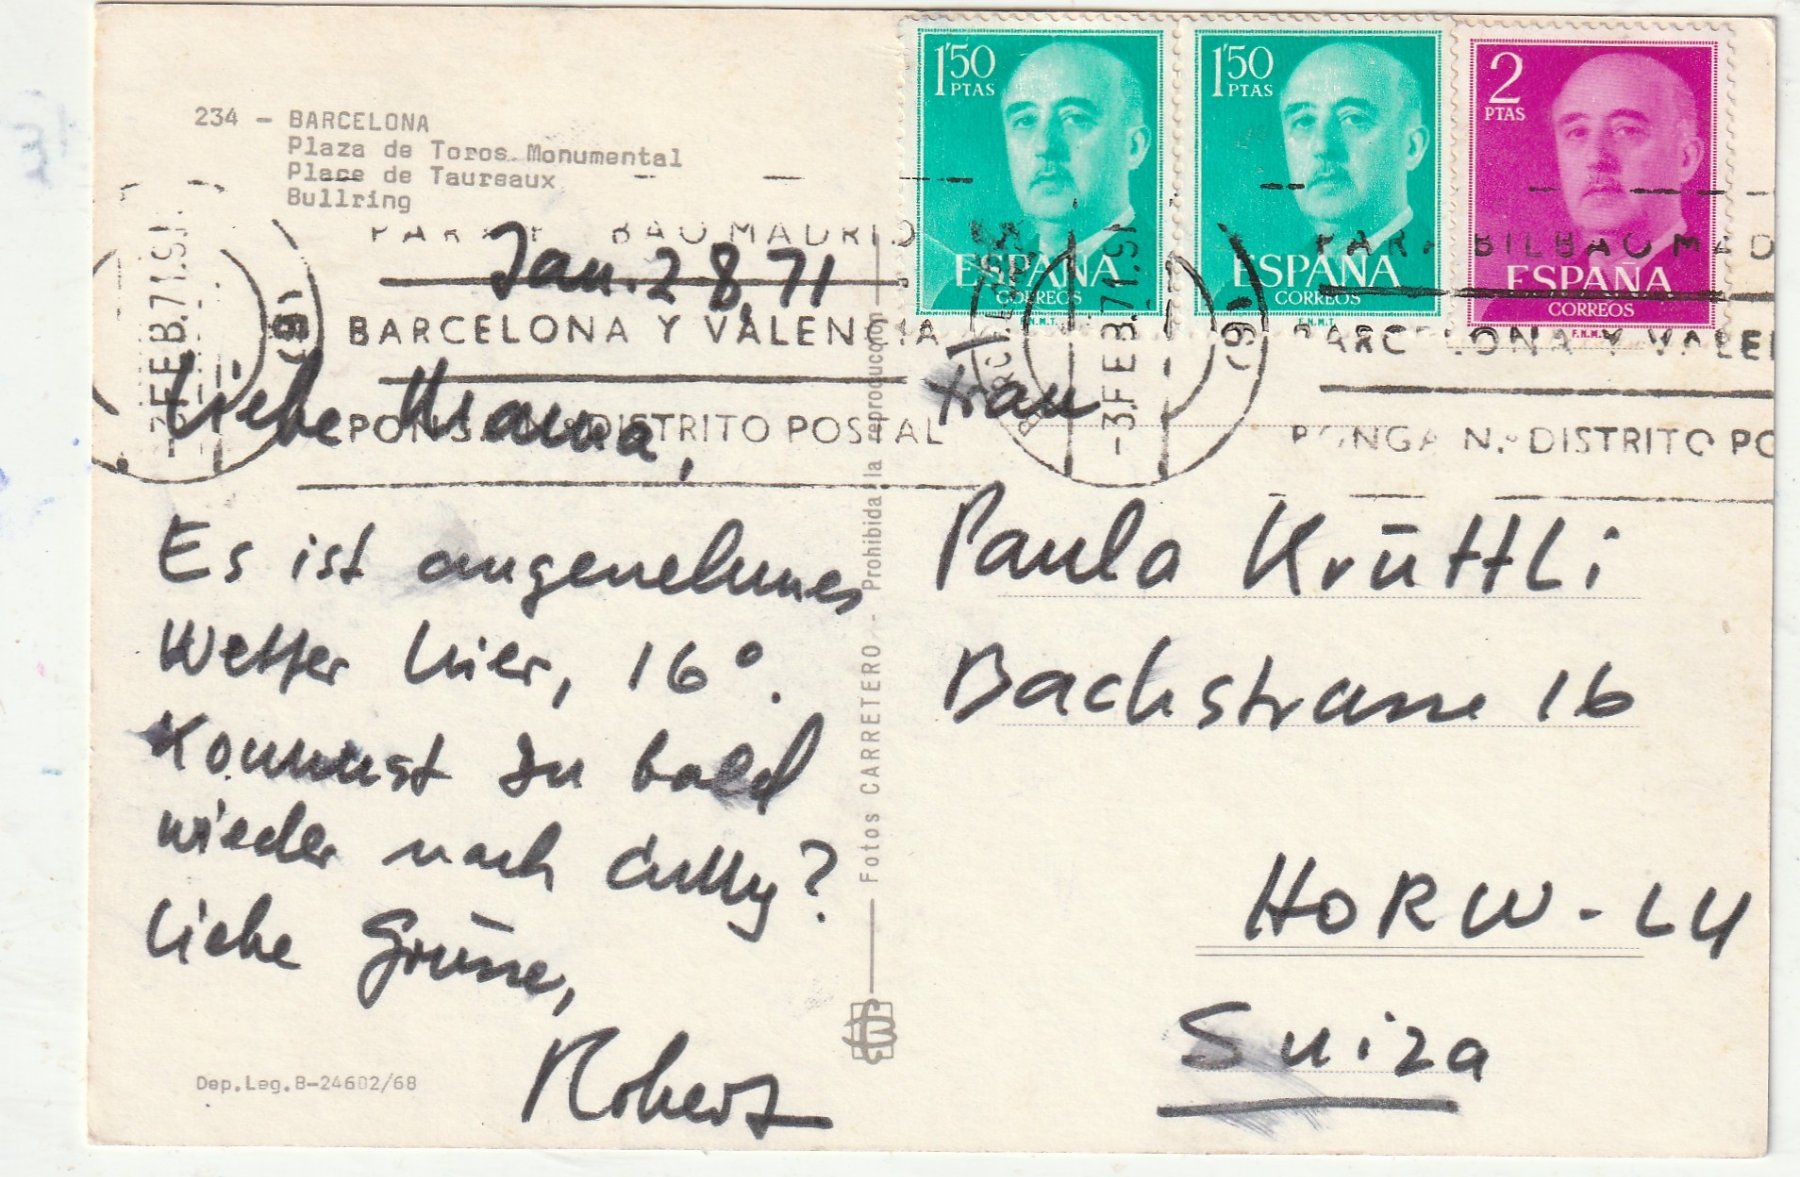 234 - BARCELONA
Plaza de Toros Monumental
Place de Taureaux
Bullring
Jan. 28, 71
Liebe Mama,
Es ist angenehmes
Wetter hier, 16°.
Kommst Du bald
wieder nach Cully?
Liebe Grüsse,
Robert
Dep.Leg.B-24602/68
Fotos CARRETERO - Prohibida la reproducción
1'50
PTAS
ESPAÑA
CORREOS
F.N.M.T.
1'50
PTAS
ESPAÑA
CORREOS
F.N.M.T.
2
PTAS
ESPAÑA
CORREOS
F.N.M.T.
PARA BILBAO MADRID
BARCELONA Y VALENCIA
PONGA N.º DISTRITO POSTAL
-3.FEB.71.9
(9)
-3.FEB.71.9
(9)
PARA BILBAO MAD
BARCELONA Y VALEN
PONGA N.º DISTRITO PO
Frau
Paula Krüttli
Bachstrasse 16
HORW - LU
Suiza